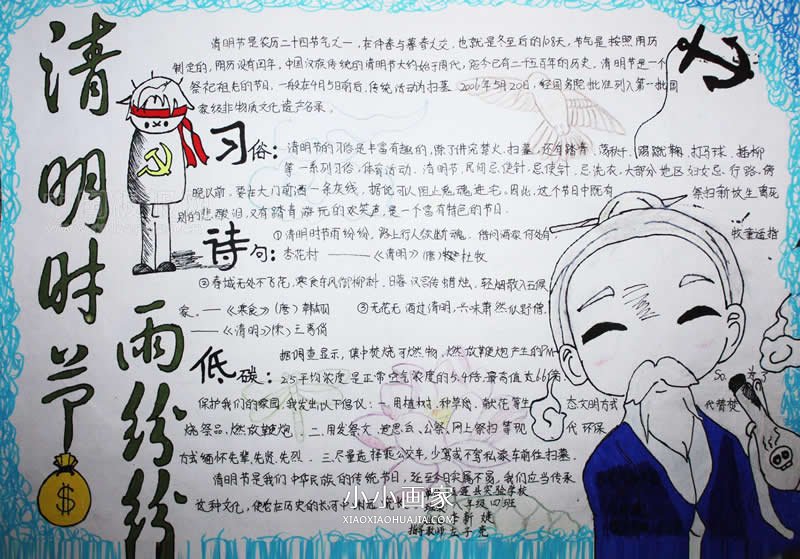 清明时节
雨纷纷
清明节是农历二十四节气之一，在仲春与暮春之交，也就是冬至后的108天，节气是按照阳历
制定的，阴历没有闰年，中国汉族传统的清明节大约始于周代，距今已有二千五百年的历史，清明节是一个
祭祀祖先的节日，一般在4月5日前后，传统活动为扫墓，2006年5月20日，经国务院批准列入第一批国
家级非物质文化遗产名录。
习俗：清明节的习俗是丰富有趣的，除了讲究禁火、扫墓，还有踏青、荡秋千、踢蹴鞠、打马球、插柳
等一系列习俗，体育活动。清明节，民间忌使针，忌使针，忌洗衣，大部分地区妇女忌行路，傍
晚以前，要在大门前洒一条灰线，据说可以阻止鬼魂进宅。因此，这个节日中既有祭扫新坟生离死
别的悲酸泪，又有踏青游玩的欢笑声，是一个富有特色的节日。
诗句：①清明时节雨纷纷，路上行人欲断魂。借问酒家何处有，牧童遥指
杏花村 ——《清明》(唐)杜牧
②春城无处不飞花，寒食东风御柳斜。日暮汉宫传蜡烛，轻烟散入五侯
家。——《寒食》(唐)韩翃 ③无花无酒过清明，兴味萧然似野僧。
——《清明》(宋)王禹偁
低碳：据调查显示，集中焚烧可燃物，燃放鞭炮产生的PM
2.5平均浓度是正常空气浓度的5.4倍，最高值达66倍，So，为了
保护我们的家园，我发出以下倡议：一.用植树、种草线、献花等生态文明方式代替焚
烧祭品、燃放鞭炮 二.用发祭文、追思会、公祭、网上祭扫等现代环保
方式缅怀先辈、先贤、先烈. 三.尽量选择乘公交车，少驾或不驾私家车前往扫墓.
清明节是我们中华民族的传统节日，延至今日实属不易，我们应当传承
这种文化，使它在历史的长河中
实验学校
年级四班
指教师
小小画家
XIAOXIAOHUAJIA.COM
$